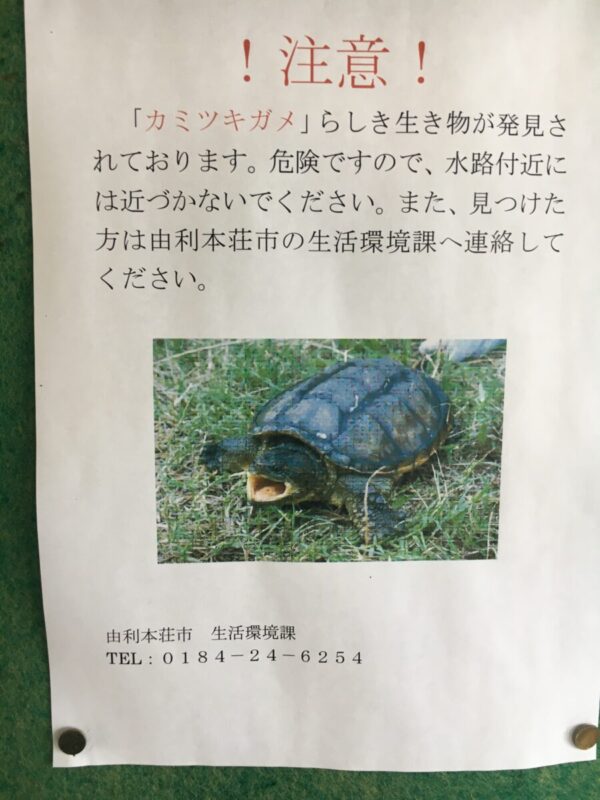 ！注意！
「カミツキガメ」らしき生き物が発見さ
れております。危険ですので、水路付近に
は近づかないでください。また、見つけた
方は由利本荘市の生活環境課へ連絡して
ください。
由利本荘市　生活環境課
TEL：０１８４－２４－６２５４